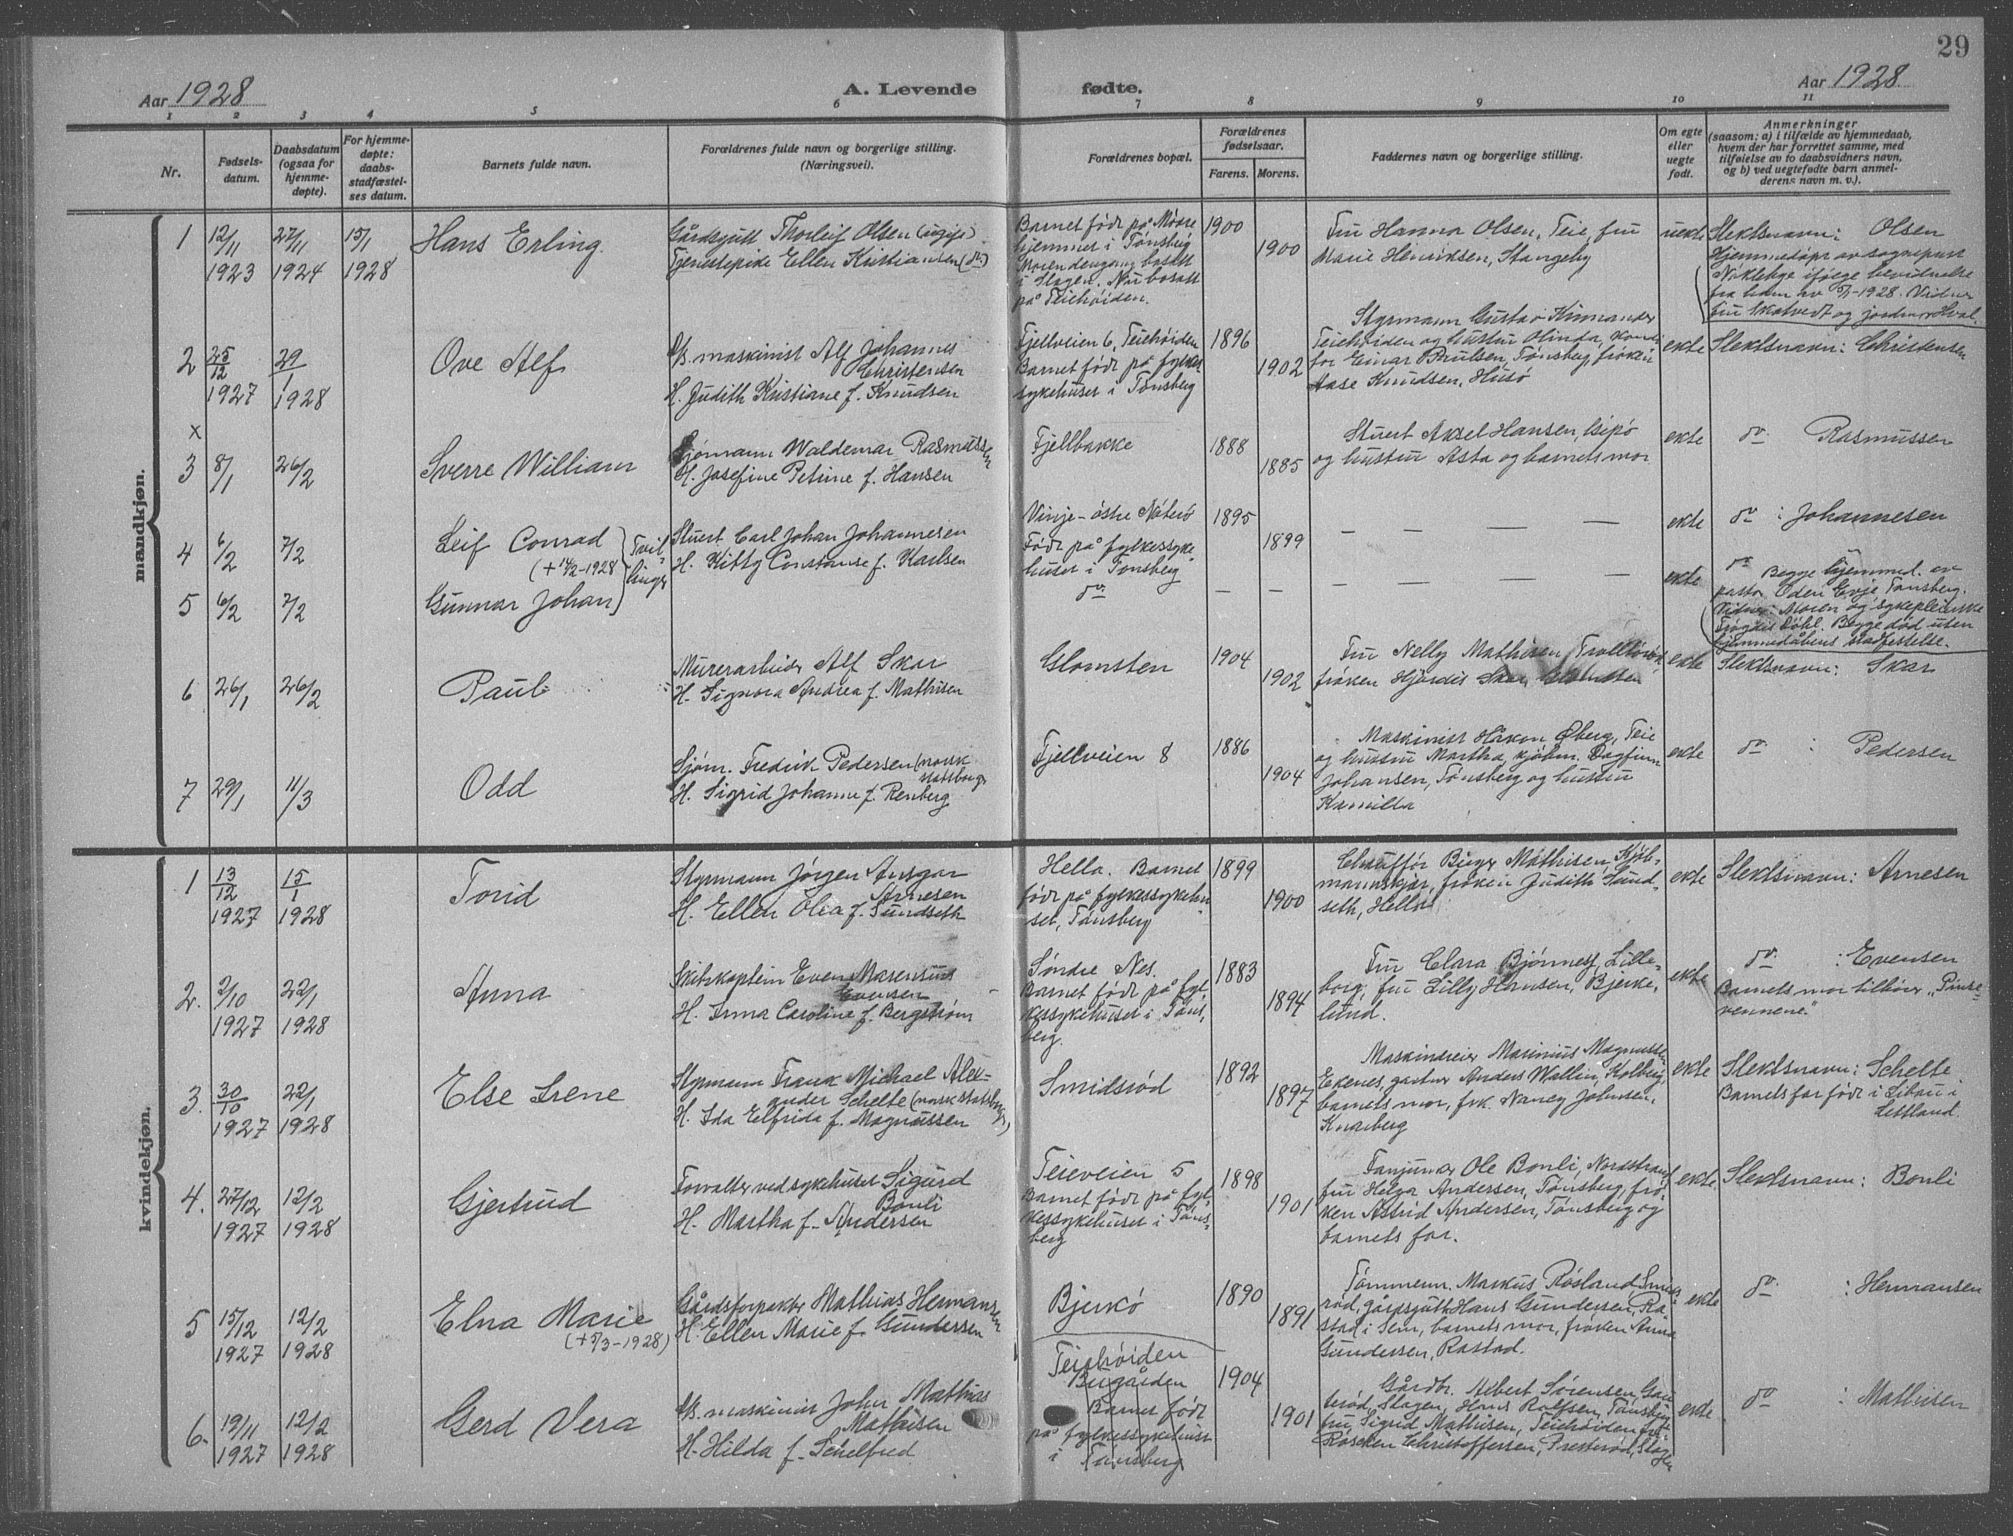 29
Aar 1928
A. Levende fødte.
Aar 1928
1 2 3 4 5 6 7 8 9 10 11
Nr.
Fødsels-
datum.
Daabsdatum
(ogsaa for
hjemme-
døpte).
For hjemme-
døpte:
daabs-
stadfæstel-
ses datum.
Barnets fulde navn.
Forældrenes fulde navn og borgerlige stilling.
(Næringsvei).
Forældrenes bopæl.
Forældrenes
fødselsaar.
Farens. Morens.
Faddernes navn og borgerlige stilling.
Om egte
eller
uegte
født.
Anmerkninger
(saasom: a) i tilfælde av hjemmedaab,
hvem der har forrettet samme, med
tilføielse av to daabsvidners navn,
og b) ved uegtefødte barn anmel-
derens navn m. v.).
mandkjøn.
1
12/11
1923
27/11
1924
15/1
1928
Hans Erling
Gårdsgutt Thorleif Olsen (ugift)
Tjenestepike Ellen Kristiansen (do)
Barnet født på Mødre
hjemmet i Tønsberg
Moren dengang bosatt
i Slagen. Nu bosatt
på Teiehøiden.
1900
1900
Fru Hanna Olsen, Teie, fru
Marie Henriksen, Stangeby
uekte
Slektsnavn: Olsen
Hjemmedøpt av sogneprest
ifølge bevidnelse
fra ham av 5/1-1928. Vidner
fru Skatvedt og jordmor Hval.
2
25/12
1927
29/1
1928
Ove Alf
H/s. maskinist Alf Johannes
Christensen
H. Judith Kristiane f. Knudsen
Fjellveien 6, Teiehøiden
Barnet født på fylkes
sykehuset i Tønsberg
1896
1902
Styrmann Gustav Kinnander
Teiehøiden og hustru Olinda,
for Einar Paulsen, Tønsberg, frøken
Aase Knudsen, Husø
ekte
Slektsnavn: Christensen
x
3
8/1
26/2
Sverre William
Sjømann Waldemar Rasmussen
H. Josefine Petrine f. Hansen
Fjellbakke
1888
1885
Stuert Aksel Hansen,
og hustru Asta og barnets mor
ekte
do Rasmussen
4
6/2
7/2
Leif Conrad
(+ 12/2-1928
Tvil-
linger
Stuert Carl Johan Johannesen
H. Kitty Constanse f. Karlsen
Vinje - østre Nøterø
Født på fylkessyke
huset i Tønsberg
1895
1899
— — — — —
ekte
do : Johannesen
5
6/2
7/2
Gunnar Johan
do
— —
— — — — —
ekte
do
Begge hjemmed. av
pastor Oden Evje, Tønsberg.
Vidner: Moren og sykepleierske
Døhl. Begge død uten
hjemmedåbens stadfestelse.
6
26/1
26/2
Paul
Murerarbeider Alf Skar
H. Signora Andrea f. Mathisen
Glomsten
1904
1902
Fru Nelly Mathisen,
frøken Hjørdis Skar, Glomsten
ekte
Slektsnavn: Skar
7
29/1
11/3
Odd
Sjøm. Fredrik Pedersen (norsk
statsborger
H. Sigrid Johanne f. Renberg
Fjellveien 8
1886
1904
Maskinist Håkon Øberg, Teie
og hustru Martha, kjøbm. Dagfinn
Johansen, Tønsberg og hustru
Kamilla
ekte
do : Pedersen
kvindekjøn.
1
13/12
1927
15/1
1928
Torid
Styrmann Jørgen Ansgar
Arnesen
H. Ellen Olea f. Sundseth
Hella. Barnet
født på fylkessykehu
set, Tønsberg
1899
1900
Chauffør Birger Mathisen, Kjøb-
mannskjær, frøken Judith Sund-
seth, Hella
ekte
Slektsnavn: Arnesen
2.
2/10
1927
22/1
1928
Anna
Skibskaptein Even Marensius
Evensen
H. Anna Caroline f. Bergstrøm
Søndre Nes.
Barnet født på fyl
kessykehuset i Tøns-
berg.
1883
1894
Fru Clara Bjønness, Lille-
borg, fru Lilly Hansen, Bjerke-
lund.
ekte
do : Evensen
Barnets mor tilhører "Pinse-
vennene."
3.
30/10
1927
22/1
1928
Else Irene
Styrmann Frank Michael Alex-
ander Schelte (norsk statsborger)
H. Ida Elfrida f. Magnussen
Smidsrød
1892
1897
Maskindreier Marinius Magnussen
Ekenes, gartner Anders Wallin, Kolberg
barnets mor, frk. Nancy Johnsen,
Knarberg
ekte
Slektsnavn: Schelte
Barnets far født i Libau i
Lettland.
4.
27/12
1927
12/2
1928
Gjertrud
Forvalter ved sykehuset Sigurd
Bonli
H. Martha f. Andersen
Teieveien 5
Barnet født på fyl
kessykehuset i Tøns-
berg
1898
1901
Fanjunker Ole Bonli, Nordstrand
fru Helga Andersen, Tønsberg, frø-
ken Astrid Andersen, Tønsberg og
barnets far.
ekte
Slektsnavn: Bonli
5
15/12
1927
12/2
1928
Elna Marie
(+ 5/3-1928)
Gårdsforpakter Mathias Hermansen
H. Ellen Marie f. Gundersen
Bjerkø
1890
1891
Tømmerm. Markus Røsland, Smids
rød, gårdsgutt Hans Gundersen, Ra
stad i Sem, barnets mor, frøken Anna
Gundersen, Rastad.
ekte
do : Hermansen
6.
19/11
1927
12/2
1928
Gerd Vera
H/s. maskinist John Mathias
Mathisen
H. Hilda f. Schelfred
Teiehøiden
Bugården
Barnet født
på fylkessykehuset
i Tønsberg
1904
1901
Gårdbr. Albert Sørensen,
Slagen, Hans Rolfsen, Tønsberg
fru Sigrid Mathisen, Teiehøiden
Christoffersen, Presterød, Slagen
ekte
do : Mathisen